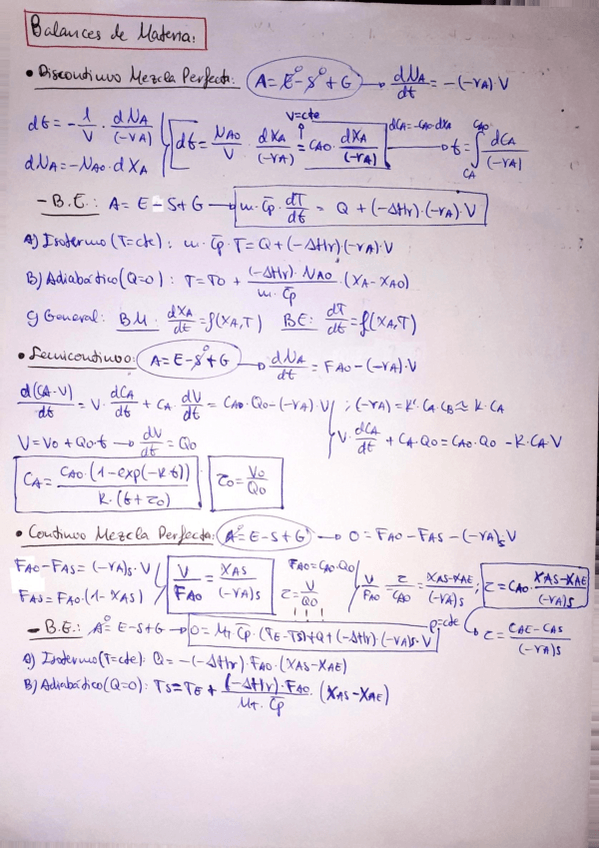 Balances de Materia:
• Discontinuo Mezcla Perfecta: A = E⁰ - S⁰ + G → dNA/dt = -(-rA)·V
dt = -1/V · dNA/(-rA)
dNA = -NAO·dXA
dt = NAO/V · dXA/(-rA) = CAO · dXA/(-rA)
V=cte
dCA=-CAO·dXA → t = ∫ CA CAO dCA/(-rA)
- B.E.: A = E - S + G → m·C̄p·dT/dt = Q + (-ΔHr)·(-rA)·V
A) Isotermo (T=cte): m·C̄p·T = Q + (-ΔHr)(-rA)·V
B) Adiabático (Q=0): T = TO + (-ΔHr)·NAO/(m·C̄p) · (XA - XAO)
C) General: BM: dXA/dt = f(XA,T) BE: dT/dt = f(XA,T)
• Semicontinuo: A = E - S⁰ + G → dNA/dt = FAO - (-rA)·V
d(CA·V)/dt = V·dCA/dt + CA·dV/dt = CAO·QO - (-rA)·V ; (-rA) = K'·CA·CB ≃ K·CA
V = VO + QO·t → dV/dt = QO
V·dCA/dt + CA·QO = CAO·QO - K·CA·V
CA = CAO·(1-exp(-K·t))/(K·(t+ζO))
ζO = VO/QO
• Continuo Mezcla Perfecta: A⁰ = E - S + G → 0 = FAO - FAS - (-rA)s V
FAO - FAS = (-rA)s·V
FAS = FAO·(1-XAS)
V/FAO = XAS/(-rA)s
FAO = CAO·QO
ζ = V/QO
V/FAO = ζ/CAO = XAS-XAE/(-rA)s ; ζ = CAO· XAS-XAE/(-rA)s
ρ=cte → ζ = CAE-CAS/(-rA)s
- B.E.: A⁰ = E-S+G → 0 = MT·C̄p·(TE-TS)+Q+(-ΔHr)·(-rA)s·V
A) Isotermo (T=cte): Q = -(-ΔHr)·FAO·(XAS-XAE)
B) Adiabático (Q=0): TS = TE + (-ΔHr)·FAO/(MT·C̄p) · (XAS-XAE)